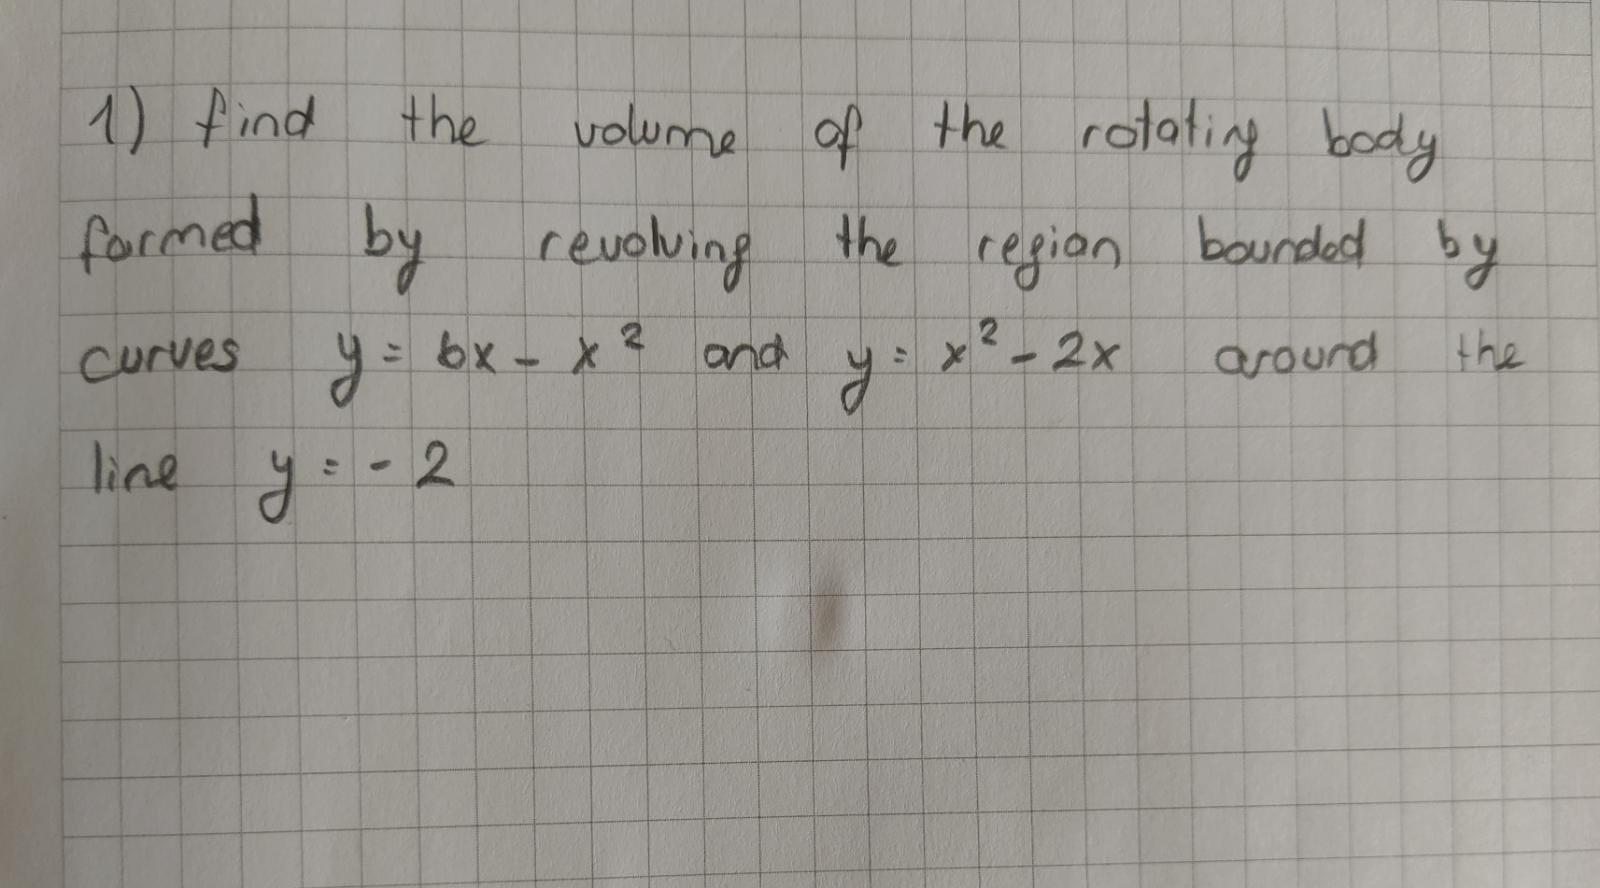 1) find the volume of the rotating body
formed by revolving the region bounded by
curves y = 6x - x² and y = x² - 2x around the
line y = -2